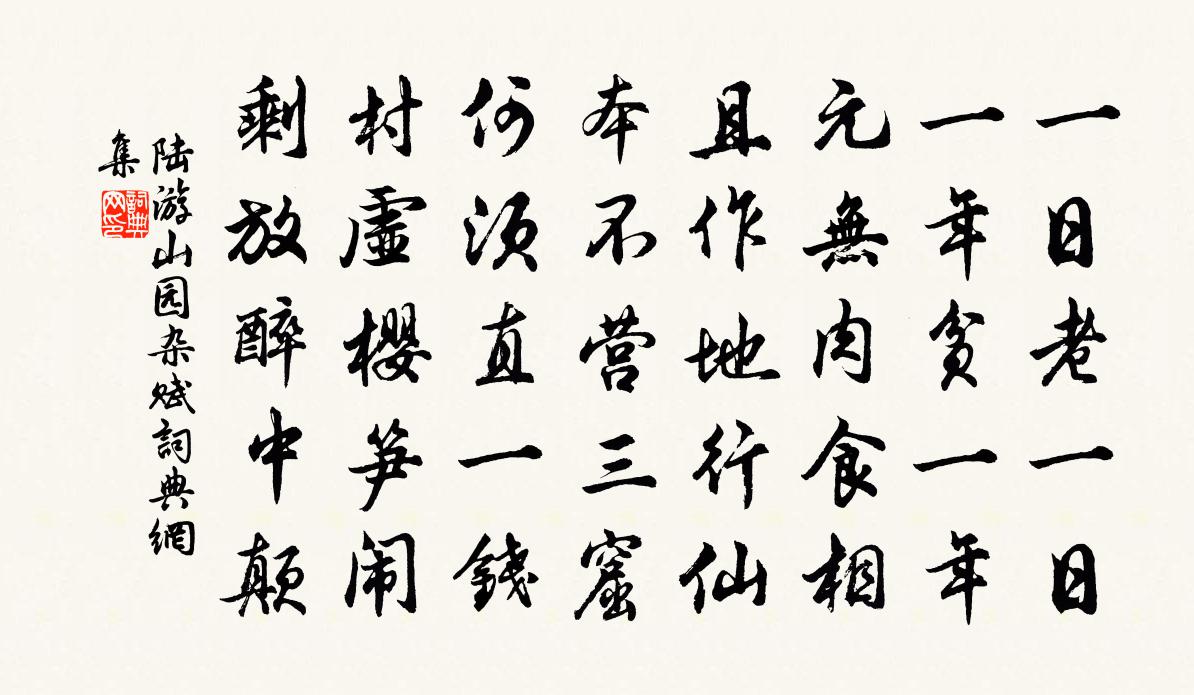 一日老一日
一年贫一年
元無肉食相
且作地行仙
本不营三窟
何须直一錢
村虚櫻笋闹
剩放醉中颠
陆游山园杂赋詞典網
集
詞典
网印